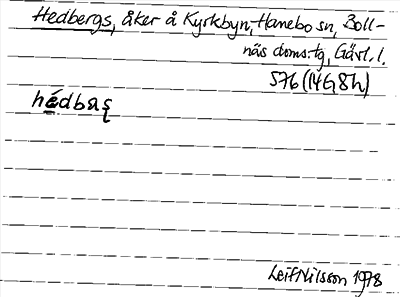 Hedbergs, åker å Kyrkbyn, Hanebo sn, Boll-
näs doms.tg, Gävl. l.
576 (14G8h)
hédbaʂ
Leif Nilsson 1978